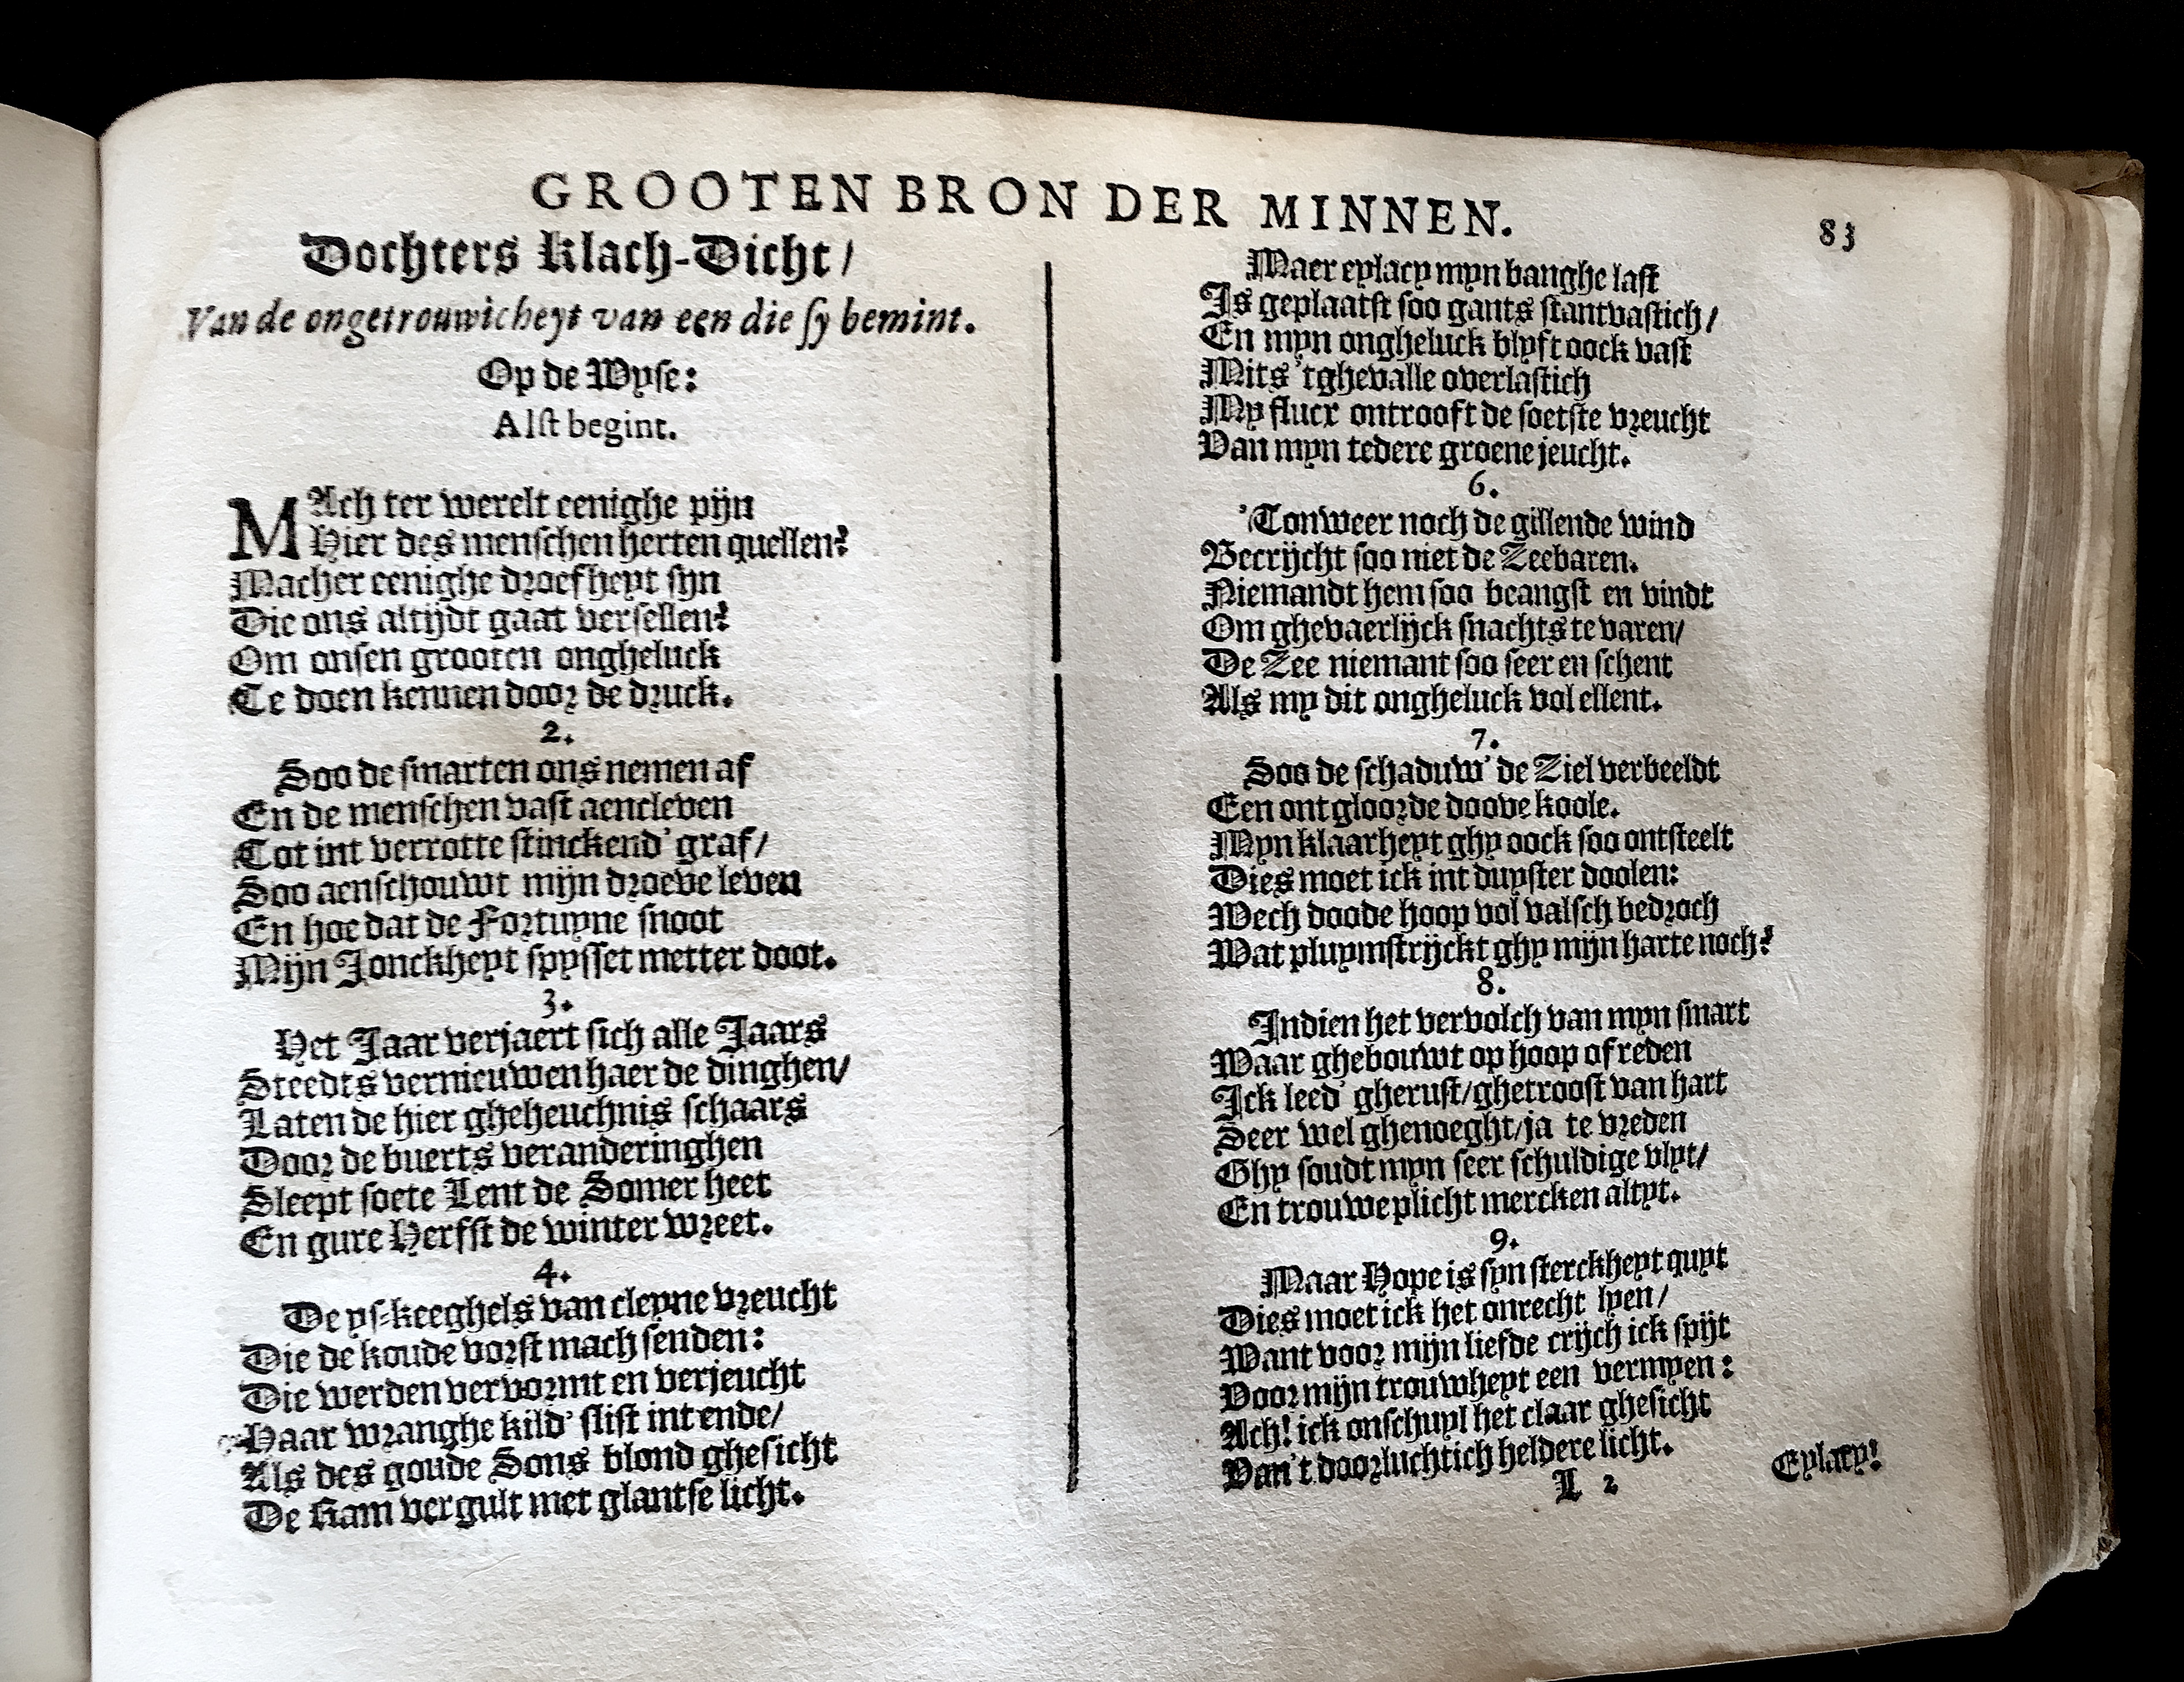 GROOTEN BRON DER MINNEN.
83
Dochters Klach-Dicht/
Van de ongetrouwicheyt van een die sy bemint.
Op de Wyse:
Alst begint.
MAch ter werelt eenighe pijn
Hier des menschen herten quellen?
Macher eenighe droefheyt syn
Die ons altijdt gaat versellen?
Om onsen grooten ongheluck
Te doen kennen door de druck.
2.
Soo de smarten ons nemen af
En de menschen vast aencleven
Tot int verrotte stinckend' graf/
Soo aenschouwt mijn droeve leven
En hoe dat de Fortuyne snoot
Mijn Jonckheyt spysset metter doot.
3.
Het Jaar verjaert sich alle Jaars
Steedts vernieuwen haer de dinghen/
Laten de hier gheheuchnis schaars
Door de buerts veranderinghen
Sleept soete Lent de Somer heet
En gure Herfst de winter wreet.
4.
De ys-keeghels van cleyne vreucht
Die de koude vorst mach senden:
Die werden vervormt en verjeucht
Haar wranghe kild' slist int ende/
Als des goude Sons blond ghesicht
De Kam vergult met glantse licht.
Maer eylacy myn banghe last
Is geplaatst soo gants stantvastich/
En myn ongheluck blyft oock vast
Mits 'tghevalle overlastich
My flucx ontrooft de soetste vreucht
Van myn tedere groene jeucht.
6.
'Tonweer noch de gillende wind
Becrijcht soo niet de Zeebaren.
Niemandt hem soo beangst en vindt
Om ghevaerlijck snachts te varen/
De Zee niemant soo seer en schent
Als my dit ongheluck vol ellent.
7.
Soo de schaduw' de Ziel verbeeldt
Een ontgloorde doove koole.
Myn klaarheyt ghy oock soo ontsteelt
Dies moet ick int duyster doolen:
Wech doode hoop vol valsch bedroch
Wat pluymstrijckt ghy mijn harte noch?
8.
Indien het vervolch van myn smart
Waar ghebouwt op hoop of reden
Ick leed' gherust/ghetroost van hart
Seer wel ghenoeght/ja te vreden
Ghy soudt myn seer schuldige vlyt/
En trouwe plicht mercken altyt.
9.
Maar Hope is syn sterckheyt quyt
Dies moet ick het onrecht lyen/
Want voor mijn liefde crijch ick spijt
Voor mijn trouwheyt een vermyen:
Ach! ick onschuyl het claar ghesicht
Van't doorluchtich heldere licht.
L 2
Eylacy!